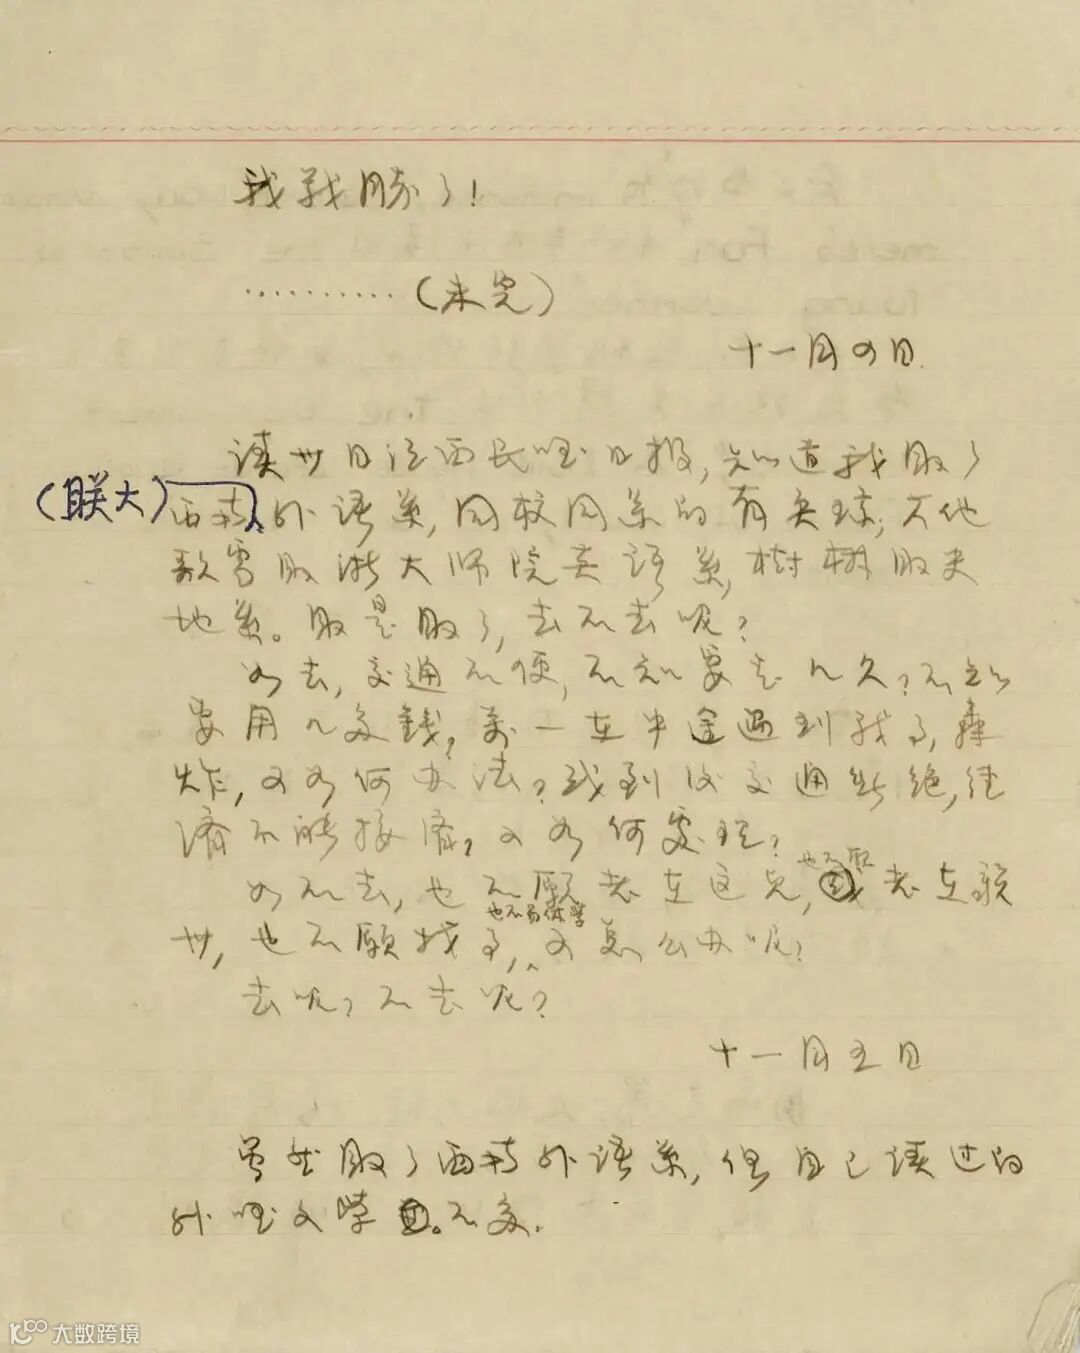 我战胜了!
··········(未完)
十一月四日
读卅日江西民国日报,知道我取了
(联大)西南外语系,同校同系的有吴琼;其他
散雪取浙大师院英语系,树椒取史
地系。取是取了,去不去呢?
如去,交通不便,不知要走几久?不知
要用几多钱?万一在中途遇到战事,轰
炸,又如何办法?或到后交通断绝,经
济不能接济,又如何处理?
如不去,也不愿老在这儿,也不愿老在联
也不易休学
廿,也不愿找事,又怎么办呢?
去呢?不去呢?
十一月五日
虽然取了西南外语系,但自己读过的
外国文学不多.
大数跨境